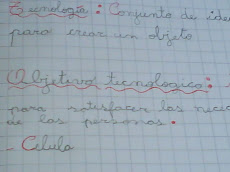 Tecnología: Conjunto de ide
para crear un objeto
Objetivo tecnologico:
para satisfacer las neci
de las personas.
- Celula